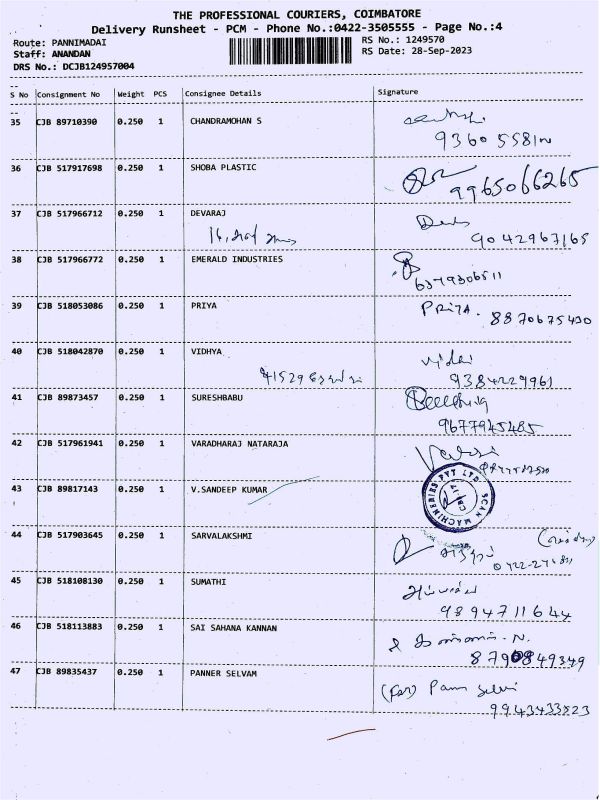 THE PROFESSIONAL COURIERS, COIMBATORE
Delivery Runsheet - PCM - Phone No.:0422-3505555 - Page No.:4
Route: PANNIMADAI
RS No.: 1249570
Staff: ANANDAN
RS Date: 28-Sep-2023
DRS No.: DCJB124957004
S No Consignment No Weight PCS Consignee Details Signature
35 CJB 89710390 0.250 1 CHANDRAMOHAN S
36 CJB 517917698 0.250 1 SHOBA PLASTIC
9965066265
37 CJB 517966712 0.250 1 DEVARAJ
9042967165
38 CJB 517966772 0.250 1 EMERALD INDUSTRIES
6379306511
39 CJB 518053086 0.250 1 PRIYA PRIYA.
8870675430
40 CJB 518042870 0.250 1 VIDHYA
9384229961
41 CJB 89873457 0.250 1 SURESHBABU
9677945485
42 CJB 517961941 0.250 1 VARADHARAJ NATARAJA
43 CJB 89817143 0.250 1 V.SANDEEP KUMAR
SCAN MACHINERIES PVT LTD.
44 CJB 517903645 0.250 1 SARVALAKSHMI
45 CJB 518108130 0.250 1 SUMATHI
9894711644
46 CJB 518113883 0.250 1 SAI SAHANA KANNAN
8790849349
47 CJB 89835437 0.250 1 PANNER SELVAM
9943433523